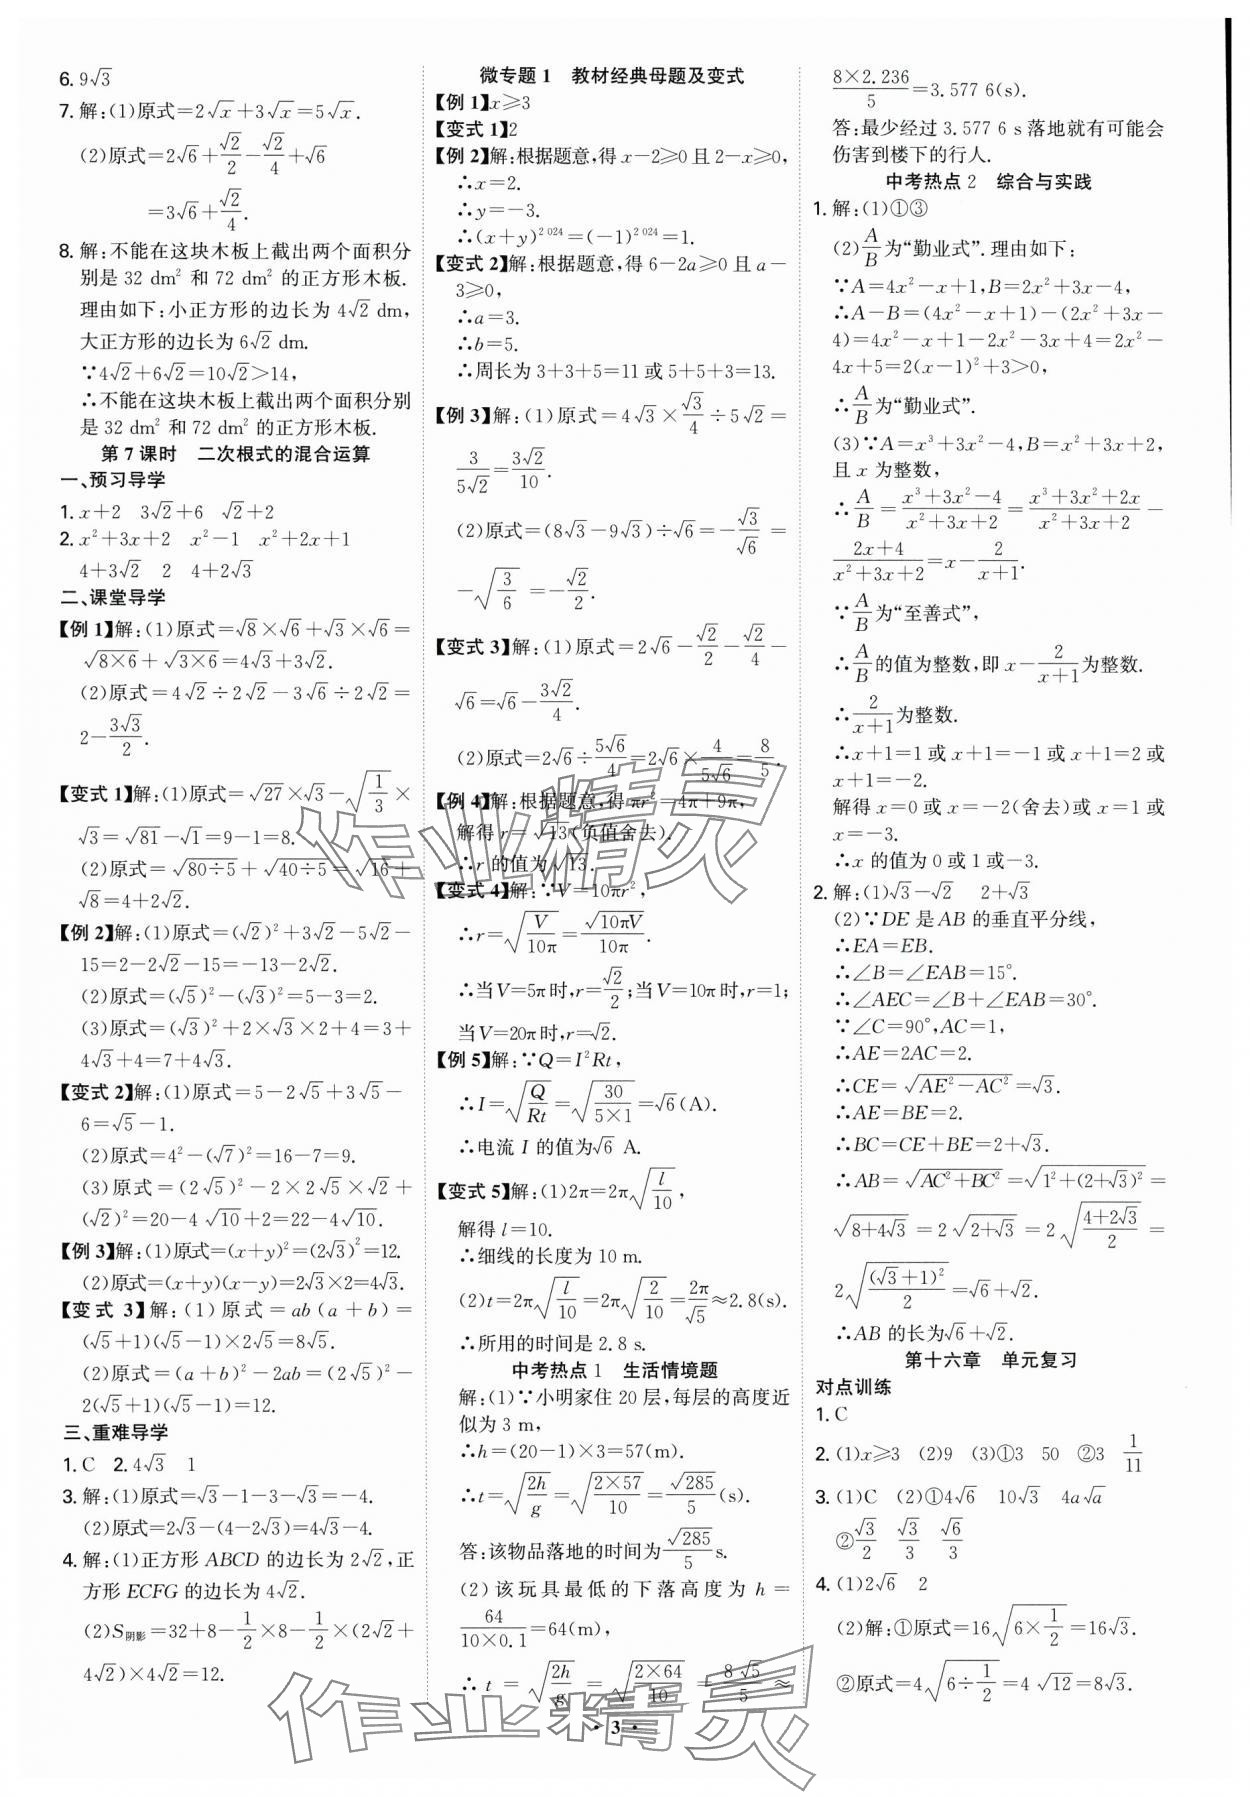 6. 9√3
7. 解:(1)原式=2√x+3√x=5√x.
(2)原式=2√6+√2/2-√2/4+√6
=3√6+√2/4.
8. 解:不能在这块木板上截出两个面积分
别是 32 dm² 和 72 dm² 的正方形木板.
理由如下:小正方形的边长为 4√2 dm,
大正方形的边长为 6√2 dm.
∵4√2+6√2=10√2>14,
∴不能在这块木板上截出两个面积分别
是 32 dm² 和 72 dm² 的正方形木板.
第 7 课时 二次根式的混合运算
一、预习导学
1. x+2 3√2+6 √2+2
2. x²+3x+2 x²-1 x²+2x+1
4+3√2 2 4+2√3
二、课堂导学
【例 1】解:(1)原式=√8×√6+√3×√6=
√(8×6)+√(3×6)=4√3+3√2.
(2)原式=4√2÷2√2-3√6÷2√2=
2-3√3/2.
【变式 1】解:(1)原式=√27×√3-√(1/3)×
√3=√81-√1=9-1=8.
(2)原式=√(80÷5)+√(40÷5)=√16+
√8=4+2√2.
【例 2】解:(1)原式=(√2)²+3√2-5√2-
15=2-2√2-15=-13-2√2.
(2)原式=(√5)²-(√3)²=5-3=2.
(3)原式=(√3)²+2×√3×2+4=3+
4√3+4=7+4√3.
【变式 2】解:(1)原式=5-2√5+3√5-
6=√5-1.
(2)原式=4²-(√7)²=16-7=9.
(3)原式=(2√5)²-2×2√5×√2+
(√2)²=20-4√10+2=22-4√10.
【例 3】解:(1)原式=(x+y)²=(2√3)²=12.
(2)原式=(x+y)(x-y)=2√3×2=4√3.
【变式 3】解:(1)原式=ab(a+b)=
(√5+1)(√5-1)×2√5=8√5.
(2)原式=(a+b)²-2ab=(2√5)²-
2(√5+1)(√5-1)=12.
三、重难导学
1. C 2. 4√3 1
3. 解:(1)原式=√3-1-3-√3=-4.
(2)原式=2√3-(4-2√3)=4√3-4.
4. 解:(1)正方形 ABCD 的边长为 2√2,正
方形 ECFG 的边长为 4√2.
(2)S阴影=32+8-1/2×8-1/2×(2√2+
4√2)×4√2=12.
微专题 1 教材经典母题及变式
【例 1】x≥3
【变式 1】2
【例 2】解:根据题意,得 x-2≥0 且 2-x≥0,
∴x=2.
∴y=-3.
∴(x+y)²⁰²⁴=(-1)²⁰²⁴=1.
【变式 2】解:根据题意,得 6-2a≥0 且 a-
3≥0,
∴a=3.
∴b=5.
∴周长为 3+3+5=11 或 5+5+3=13.
【例 3】解:(1)原式=4√3×√3/4÷5√2=
3/(5√2)=3√2/10.
(2)原式=(8√3-9√3)÷√6=-√3/√6=
-√(3/6)=-√2/2.
【变式 3】解:(1)原式=2√6-√2/2-√2/4-
√6=√6-3√2/4.
(2)原式=2√6÷5√6/4=2√6×4/(5√6)=8/5.
【例 4】解:根据题意,得 πr²=4π+9π,
解得 r=√13(负值舍去).
∴r 的值为√13.
【变式 4】解:∵V=10πr²,
∴r=√(V/10π)=√(10πV)/10π.
∴当V=5π时,r=√2/2;当V=10π时,r=1;
当V=20π时,r=√2.
【例 5】解:∵Q=I²Rt,
∴I=√(Q/Rt)=√(30/(5×1))=√6(A).
∴电流 I 的值为√6 A.
【变式 5】解:(1)2π=2π√(l/10),
解得 l=10.
∴细线的长度为 10 m.
(2)t=2π√(l/10)=2π√(2/10)=2π/√5≈2.8(s).
∴所用的时间是 2.8 s.
中考热点 1 生活情境题
解:(1)∵小明家住 20 层,每层的高度近
似为 3 m,
∴h=(20-1)×3=57(m).
∴t=√(2h/g)=√(2×57/10)=√285/5(s).
答:该物品落地的时间为√285/5 s.
(2)该玩具最低的下落高度为 h=
64/(10×0.1)=64(m),
∴t=√(2h/g)=√(2×64/10)=8√5/5≈
8×2.236/5=3.577 6(s).
答:最少经过 3.577 6 s 落地就有可能会
伤害到楼下的行人.
中考热点 2 综合与实践
1. 解:(1)①③
(2)A/B为“勤业式”.理由如下:
∵A=4x²-x+1,B=2x²+3x-4,
∴A-B=(4x²-x+1)-(2x²+3x-
4)=4x²-x+1-2x²-3x+4=2x²-
4x+5=2(x-1)²+3>0,
∴A/B为“勤业式”.
(3)∵A=x³+3x²-4,B=x²+3x+2,
且 x 为整数,
∴A/B=(x³+3x²-4)/(x²+3x+2)=(x³+3x²+2x)/(x²+3x+2)-
(2x+4)/(x²+3x+2)=x-2/(x+1).
∵A/B为“至善式”,
∴A/B的值为整数,即 x-2/(x+1)为整数.
∴2/(x+1)为整数.
∴x+1=1 或 x+1=-1 或 x+1=2 或
x+1=-2.
解得 x=0 或 x=-2(舍去)或 x=1 或
x=-3.
∴x 的值为 0 或 1 或-3.
2. 解:(1)√3-√2 2+√3
(2)∵DE 是 AB 的垂直平分线,
∴EA=EB.
∴∠B=∠EAB=15°.
∴∠AEC=∠B+∠EAB=30°.
∵∠C=90°,AC=1,
∴AE=2AC=2.
∴CE=√(AE²-AC²)=√3.
∴AE=BE=2.
∴BC=CE+BE=2+√3.
∴AB=√(AC²+BC²)=√(1²+(2+√3)²)=
√(8+4√3)=2√(2+√3)=2√((4+2√3)/2)=
2√((√3+1)²/2)=√6+√2.
∴AB 的长为√6+√2.
第十六章 单元复习
对点训练
1. C
2. (1)x≥3 (2)9 (3)①3 50 ②3 1/11
3. (1)C (2)①4√6 10√3 4a√a
②√3/2 √3/3 √6/3
4. (1)2√6 2
(2)解:①原式=16√(6×1/2)=16√3.
②原式=4√(6÷1/2)=4√12=8√3.
· 3 ·
作业精灵
作业精灵